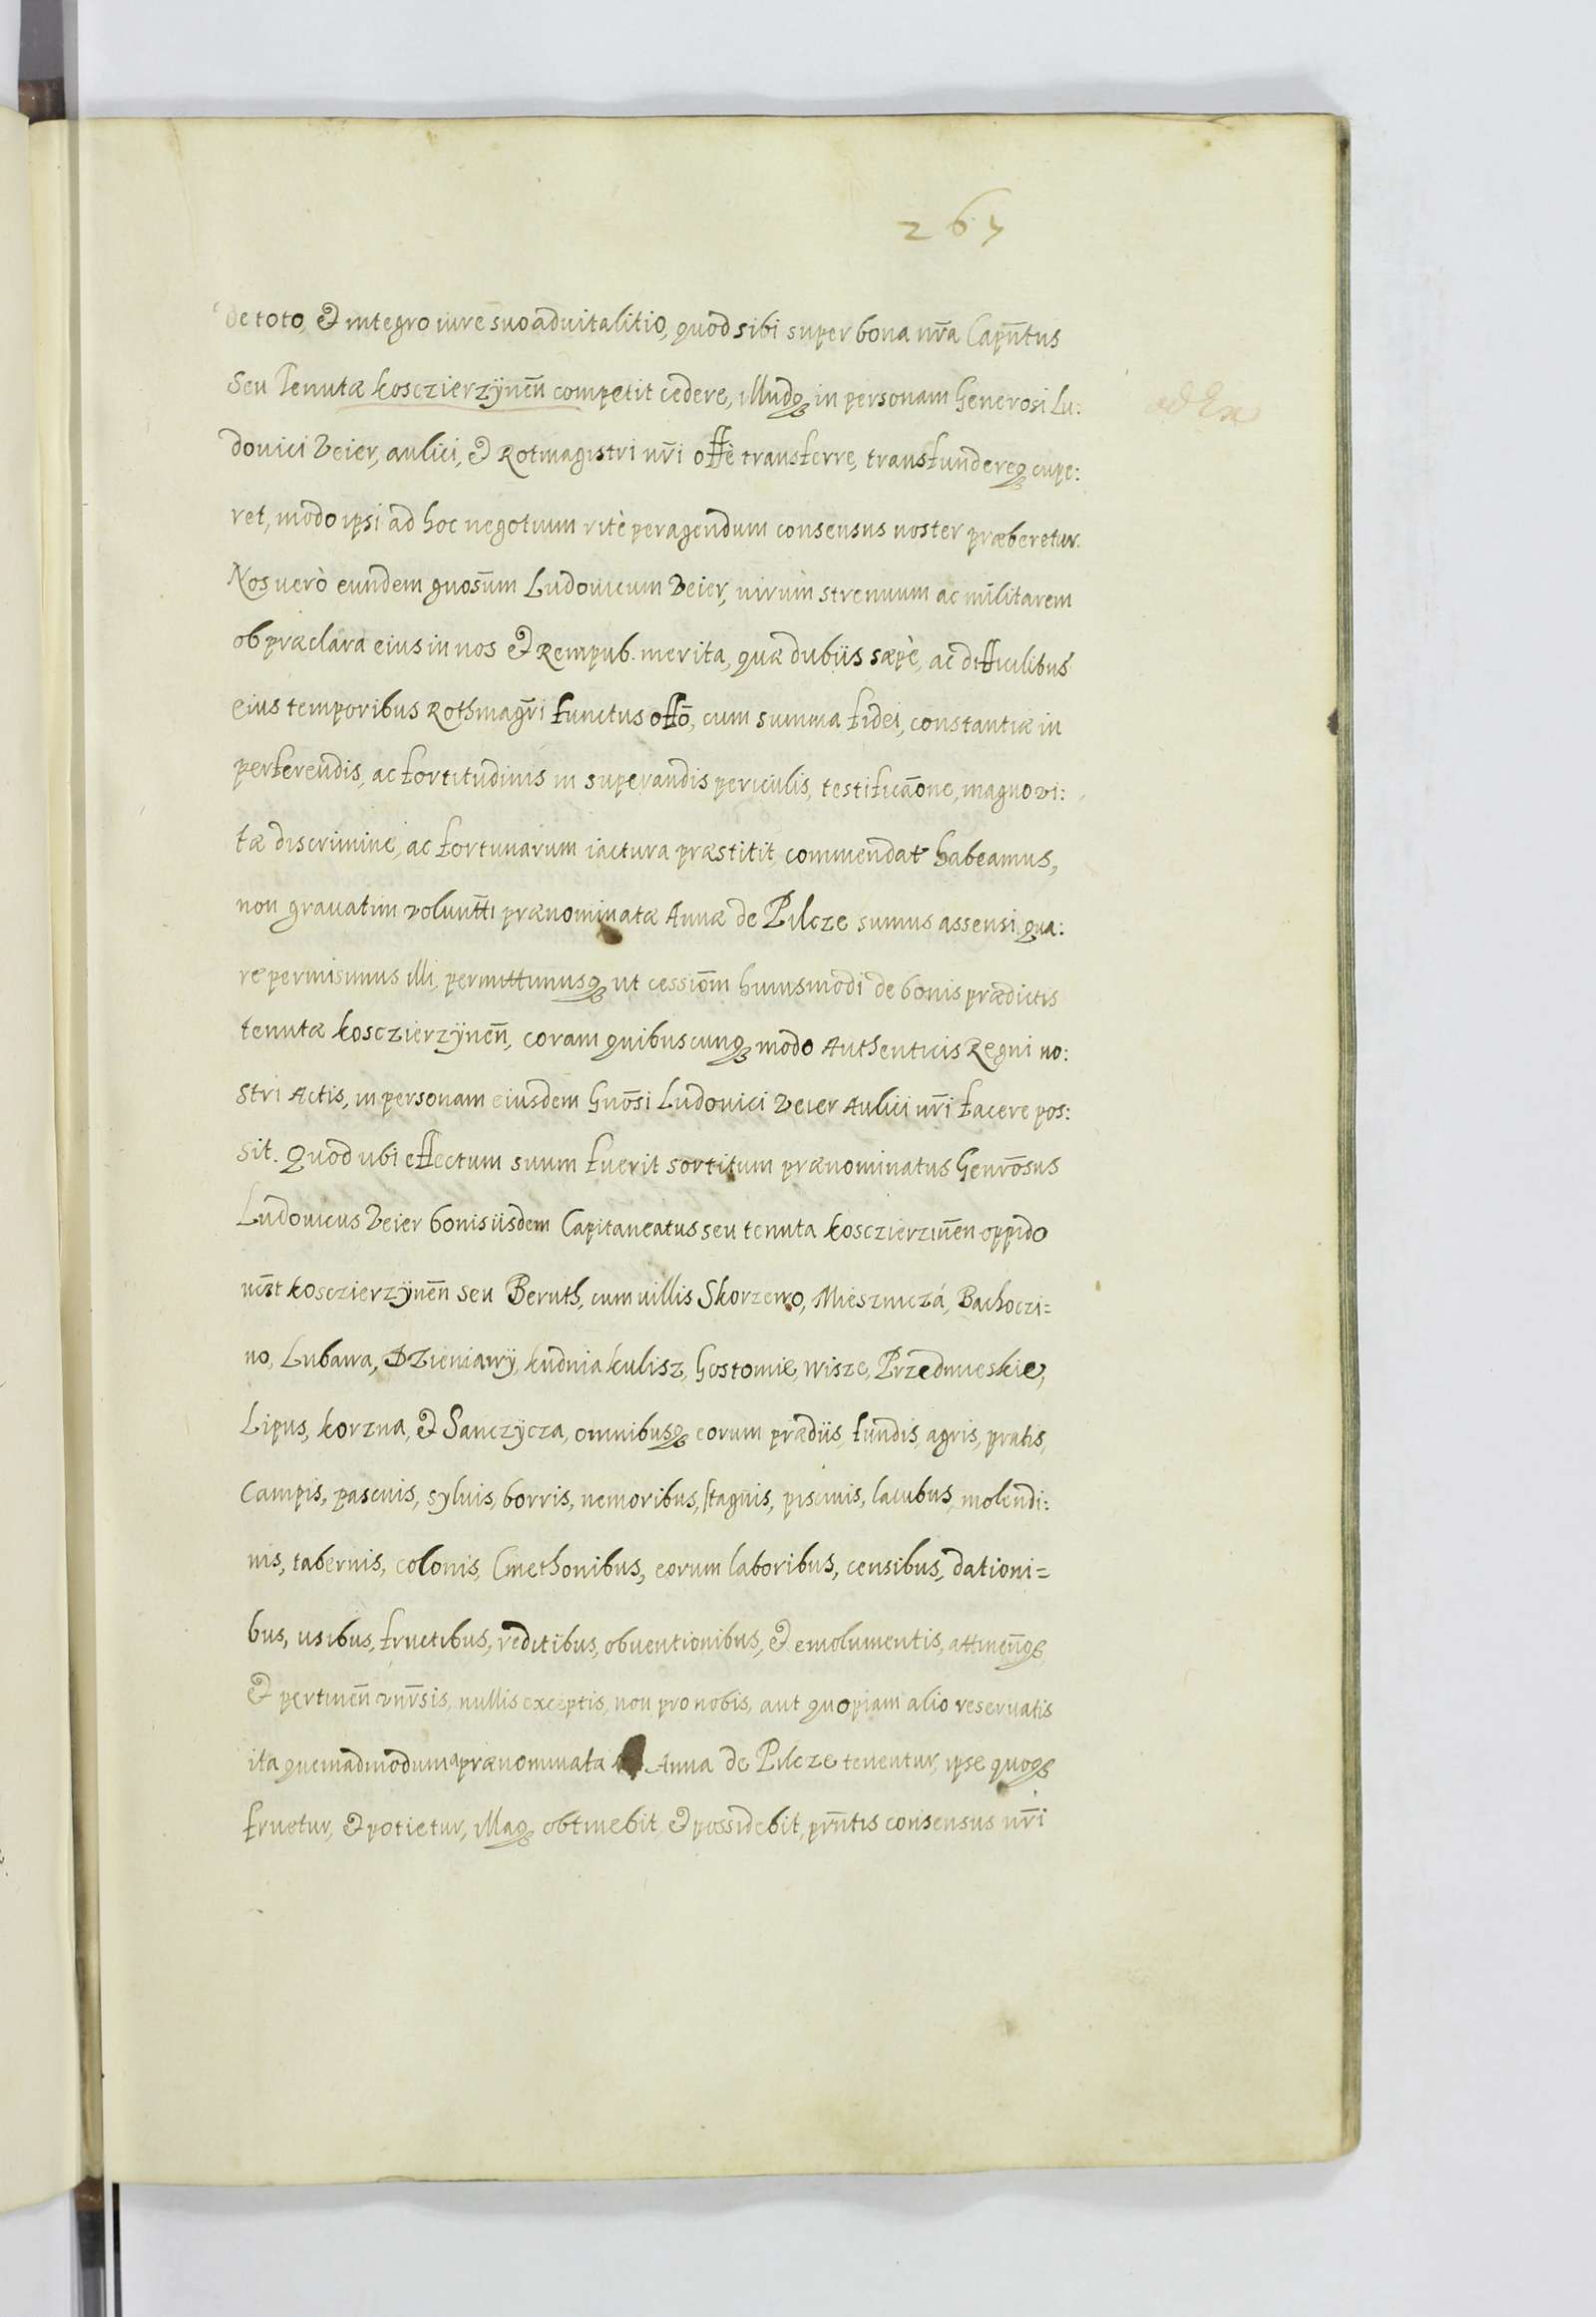 267
de toto, & integro iure suo aduitalitio, quod sibi super bona nr̄a Capñtus
Seu Tenutæ kosczierzÿnen̄ competit cedere, illudq3 in personam Generosi Lu:
douici Veier, aulici, & Rotmagistri nr̄i offè transferre, transfundereq3 cupe:
ret, modo ipsi ad hoc negotium ritè peragendum consensus noster præberetur.
Nos uerò eundem gnosūm Ludouicum Veier, uirum strenuum ac militarem
ob præclara eius in nos & Rempub. merita, quæ dubiis sæpè, ac difficilibus
eius temporibus Rothmagr̄i functus offō, cum summa fidei, constantiæ in
perferendis, ac fortitudinis in superandis periculis, testificāone, magno vi:
tæ discrimine, ac fortunarum iactura præstitit, commendat habeamus,
non grauatim volunt̄ti prænominatæ Annæ de Pilcze sumus assensi qua:
re permisimus illi, permittimusq3 ut cessiōm huiusmodi de bonis prædictis
tenutæ kosczierzÿnen̄, coram quibuscunq3 modo Authenticis Regni no:
Stri Actis, in personam eiusdem Gnōsi Ludouici Veier Aulici nr̄i facere pos:
sit. Quod ubi effectum suum fuerit sortitum prænominatus Genrōsus
Ludouicus Veier bonis iisdem Capitaneatus seu tenuta kosczierzin̄en oppido
kosczierzÿnen̄ seu Beruth, cum uillis Skorzewo, Mieszniczá, Bachoczi=
no, Lubawa, Dzieniawÿ, kudnia kulisz, Gostomie, wisze, Przedmieskie,
Lipus, korzna, & Sanczÿcza, omnibusq3 eorum prædiis, fundis, agris, pratis,
Campis, pascuis, syluis, borris, nemoribus, stagnis, piscinis, lacubus, molendi:
nis, tabernis, colonis, Cmethonibus, eorum laboribus, censibus, dationi=
bus, usibus, fructibus, reditibus, obuentionibus, & emolumentis, attinen̄q3
& pertinen̄ vnr̄sis, nullis exceptis, non pro nobis, aut quopiam alio reseruatis
ita quemadmodum a prænominata Anna de Pilcze tenentur, ipse quoq3
fruetur, & potietur, illaq3 obtinebit, & possidebit, prñtis consensus nr̄i